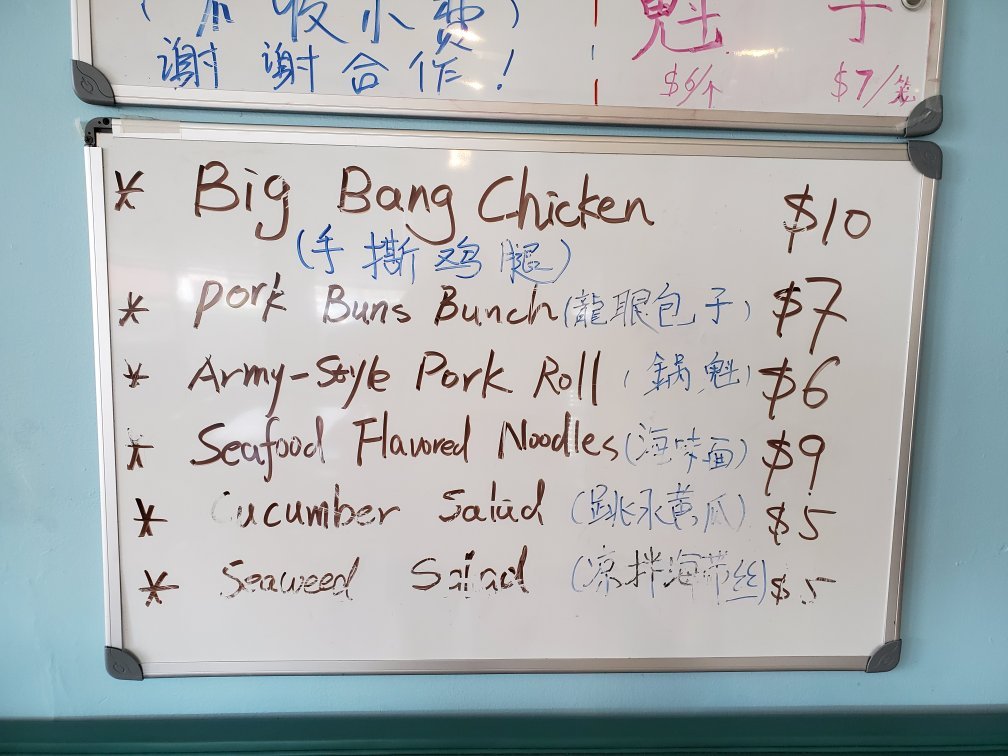 (不收小费)
魁 子
谢谢合作!
$6/个 $7/笼
* Big Bang Chicken $10
(手撕鸡腿)
* Pork Buns Bunch (龍眼包子) $7
* Army-Style Pork Roll (鍋魁) $6
* Seafood Flavored Noodles (海味面) $9
* Cucumber Salad (跳水黄瓜) $5
* Seaweed Salad (凉拌海带丝) $5